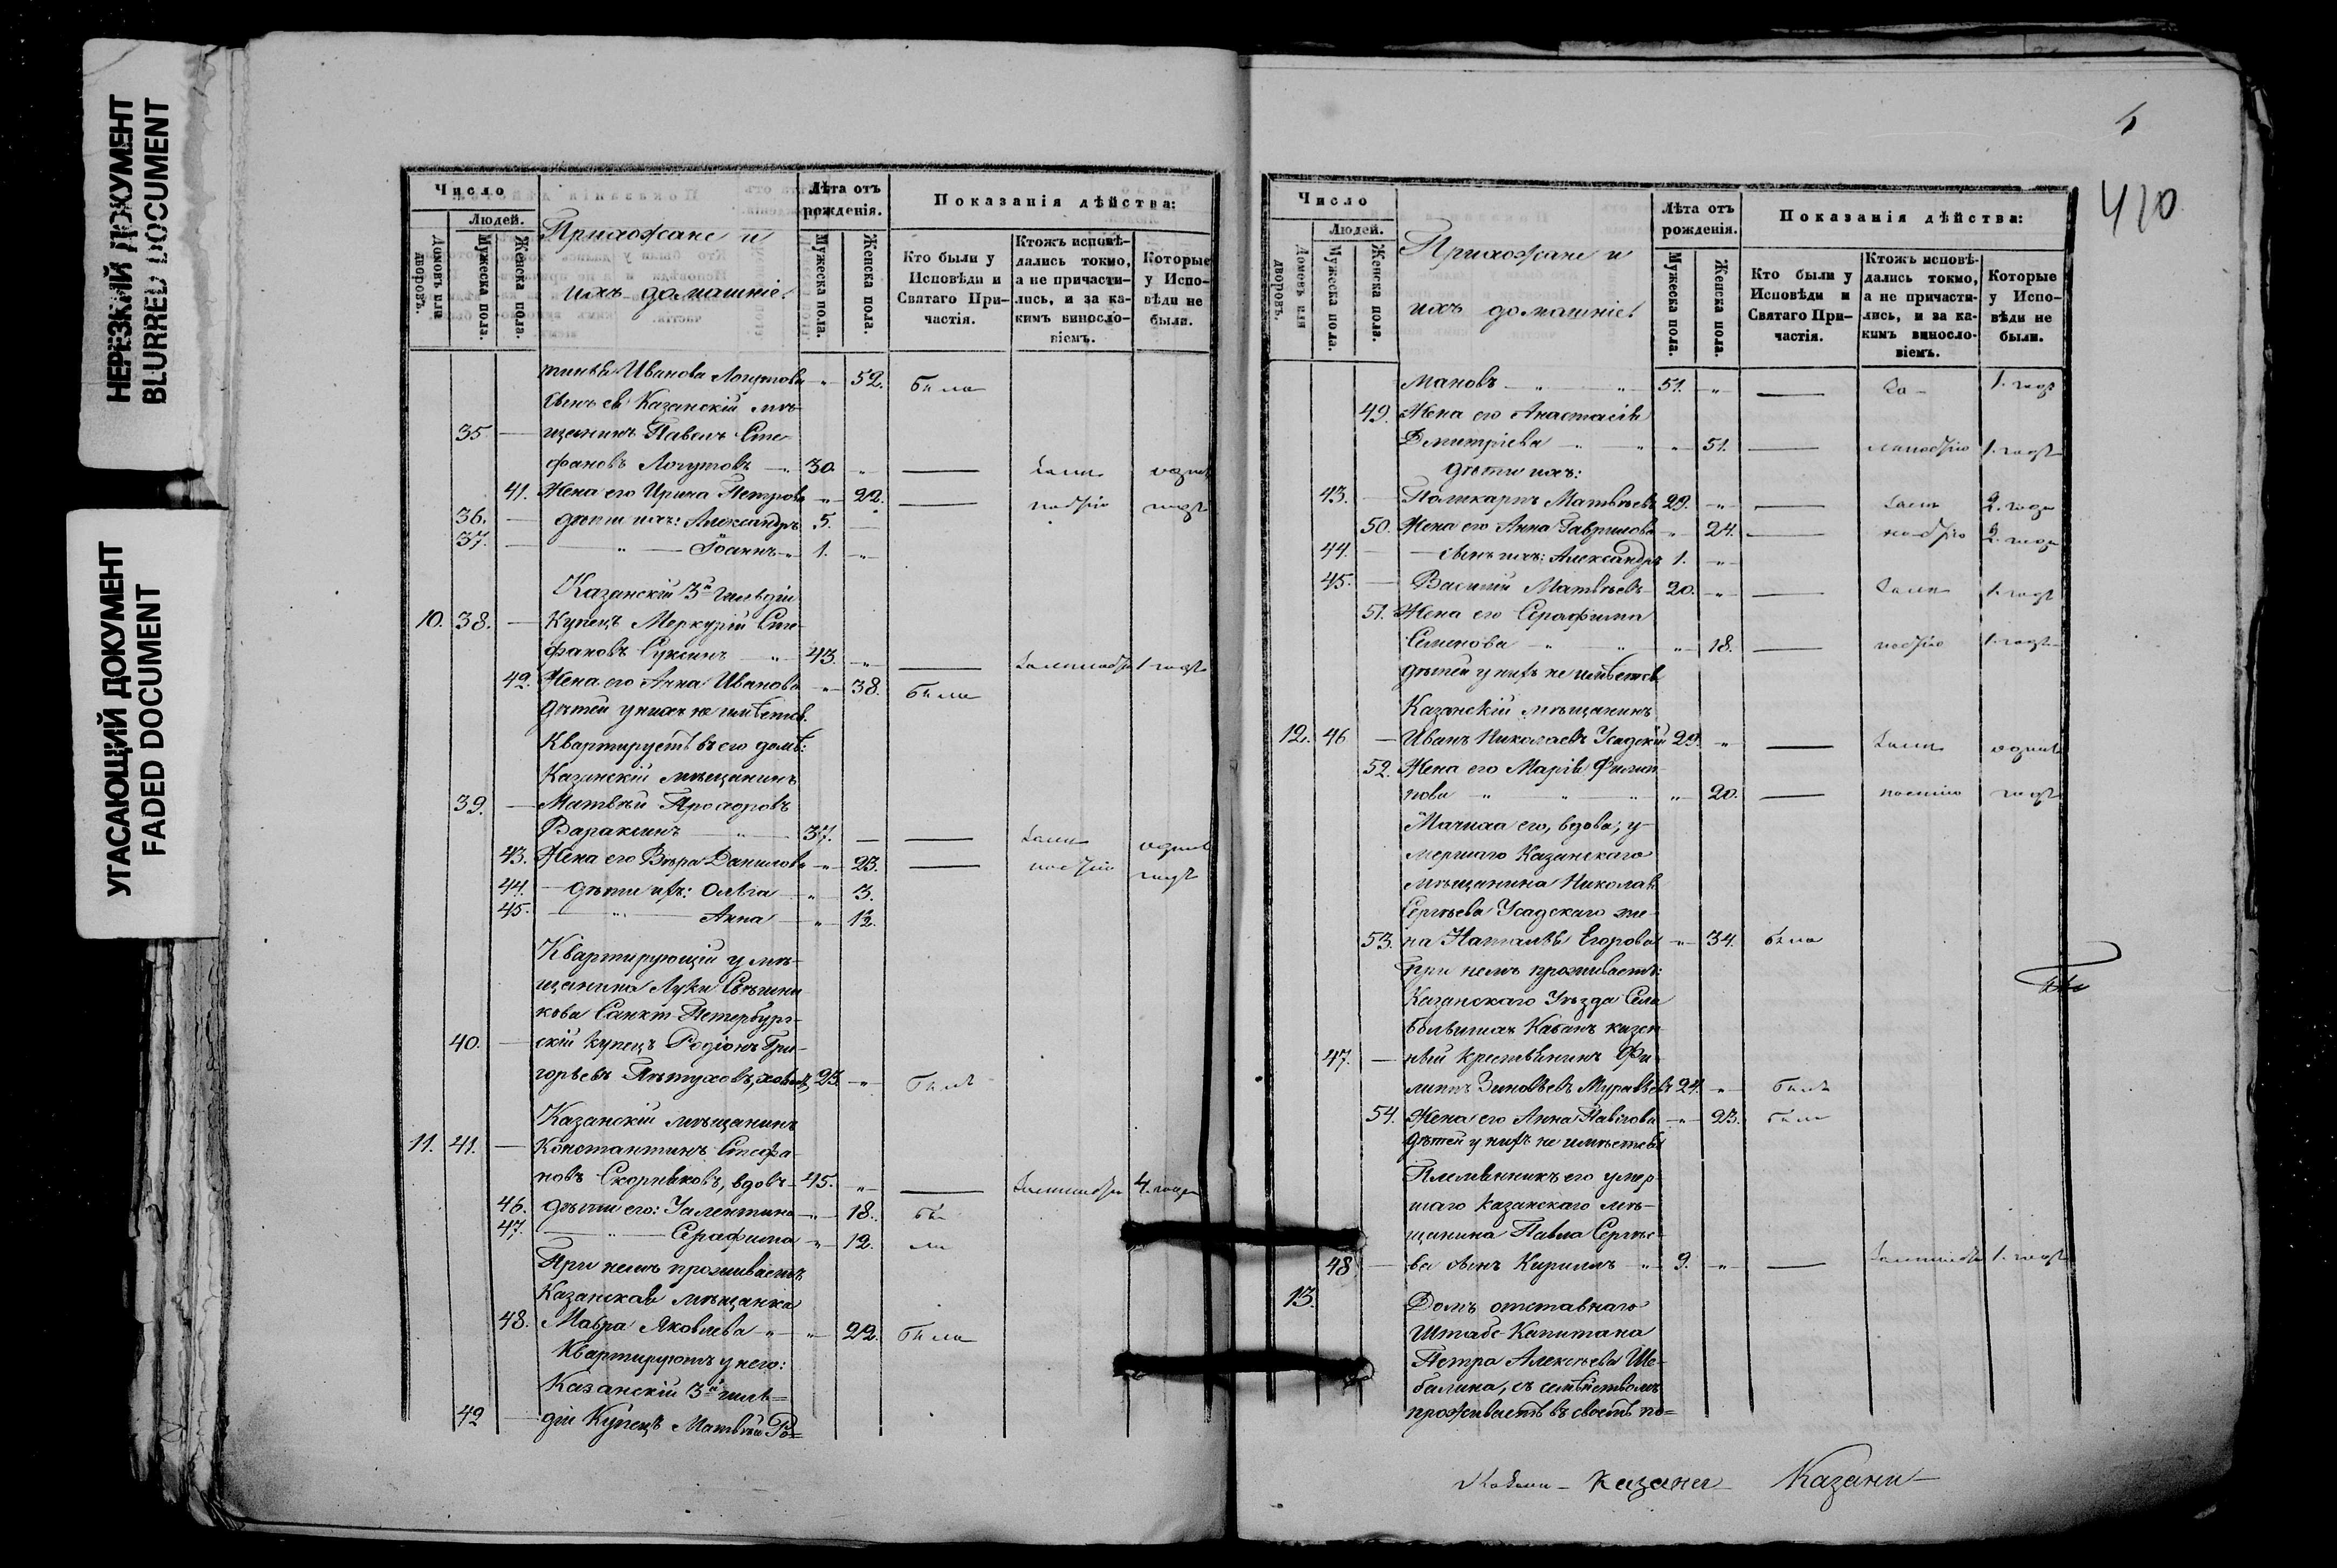 НЕРЕЗКИЙ ДОКУМЕНТ
BLURRED DOCUMENT
УГАСАЮЩИЙ ДОКУМЕНТ
FADED DOCUMENT
Число
Людей.
Домовъ или дворовъ.
Мужеска пола.
Женска пола.
Прихожане и
ихъ домашніе.
Лѣта отъ рожденія.
Мужеска пола.
Женска пола.
Показанія дѣйства:
Кто были у Исповѣди и Святаго При-частія.
Ктожъ исповѣ-дались токмо, а не причасти-лись, и за ка-кимъ винosло-віемъ.
Которые у Испо-вѣди не были.
Иванова Логутова „ 52. была
сынъ ея Казанскій мѣ-
35 — щанинъ Павелъ Сте-
фановъ Логутовъ — 30. „ —
41. Жена его Ирина Петрова „ 22. — годъ
36. — дѣти ихъ: Александръ 5. —
37. — „ — Іоаннъ „ 1. „
Казанскій 3й гильдіи
10. 38. — Купецъ Меркурій Сте-
фановъ Суксинъ „ 43. „ — 1. годъ
42. Жена его Анна Иванова „ 38. была
дѣтей у нихъ не имѣется.
Квартируетъ въ его домѣ:
Казанскій мѣщанинъ
39. — Матвѣй Прохоровъ
Вараксинъ „ 37. — —
43. Жена его Вѣра Данилова „ 23. — годъ
44. — дѣти ихъ: Ольга „ 3.
45. — „ — Анна „ 1½.
Квартирующій у мѣ-
щанина Луки
кова Санкт-Петербург-
40. — скій купецъ Родіонъ Гри-
горьевъ Пѣтуховъ, холостъ 23. „ былъ
Казанскій мѣщанинъ
11. 41. — Константинъ Стефа-
новъ Скорняковъ, вдовъ 45. „ — 4. года
46. дѣти его: Уалентина „ 18. бы-
47. — „ — Серафима „ 12. ли
При немъ проживаетъ
Казанская мѣщанка
48. Мавра Яковлева „ „ 22. была
Квартируютъ у него:
Казанскій 3й гиль-
42 — діи Купецъ Матвѣй Ро=
410
Число
Людей.
Домовъ или дворовъ.
Мужеска пола.
Женска пола.
Прихожане и
ихъ домашніе.
Лѣта отъ рожденія.
Мужеска пола.
Женска пола.
Показанія дѣйства:
Кто были у Исповѣди и Святаго При-частія.
Ктожъ исповѣ-дались токмо, а не причасти-лись, и за ка-кимъ винosло-віемъ.
Которые у Испо-вѣди не были.
мановъ „ „ 51. „ — 1. годъ
49. Жена его Анастасія
Дмитріева „ „ „ 51. — 1. годъ
дѣти ихъ:
43. — Поликарпъ Матвѣевъ 29. „ — 2. года
50. Жена его Анна Гаврилова „ 24. — 2. года
44. — сынъ ихъ: Александръ 1. „
45. — Василій Матвѣевъ 20. „ — 1. годъ
51. Жена его Серафима
Семенова „ „ „ 18. — 1. годъ
дѣтей у нихъ не имѣется
Казанскій мѣщанинъ
12. 46 — Иванъ Николаевъ Усадскій 29. „ —
52. Жена его Марія Филип-
пова „ „ „ „ 20. — годъ
Мачиха его, вдова, у-
мершаго Казанскаго
мѣщанина Николая
Сергѣева Усадскаго же-
53. на Наталья Егорова „ 34. была
При немъ проживаетъ:
Казанскаго Уѣзда Села
Большихъ Кабанъ казен-
47. — ный крестьянинъ Фи-
липпъ Зиновьевъ Муравьевъ 24. „ былъ
54. Жена его Анна Павлова „ 23. была
дѣтей у нихъ не имѣется
Племянникъ его умер-
шаго казанскаго мѣ-
щанина Павла Сергѣе-
48 — ва сынъ Кириллъ „ 9. „ — 1. годъ
13. Домъ отставнаго
Штабс-Капитана
Петра Алексѣева Ше-
балина, съ семействомъ
проживаетъ въ своемъ по=
Казани Казани